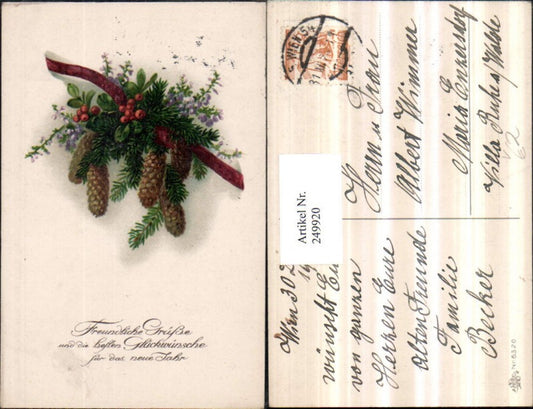 Freundliche Grüße
und die besten Glückwünsche
für das neue Jahr
WIEN
Artikel Nr.
249920
Herrn u Frau
Albert Wimmer
Maria Enzersdorf
Villa Ruhe a/ Walde
62
Wien 30
wünscht Eu
von ganzen
Herzen Eure
alten Freunde
Familie
Becker
Nr. 6520